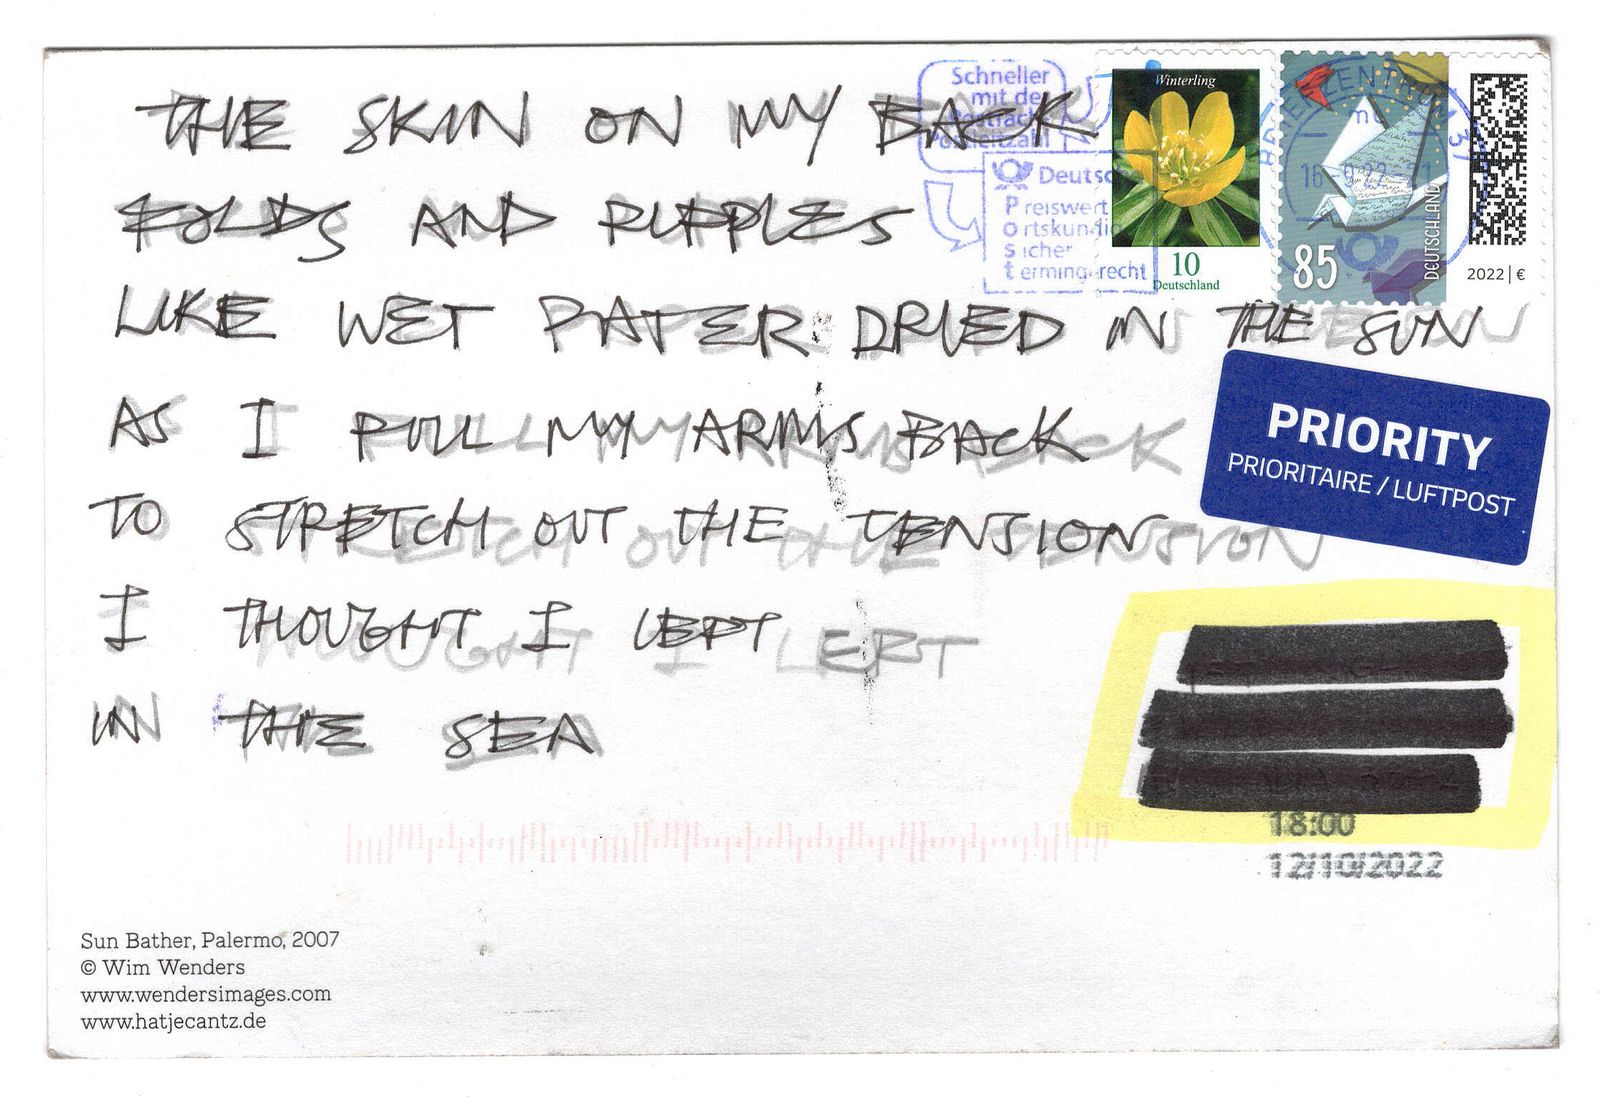 THE SKIN ON MY BACK
FOLDS AND RIPPLES
LIKE WET PAPER DRIED IN THE SUN
AS I PULL MY ARMS BACK
TO STRETCH OUT THE TENSION
I THOUGHT I LEFT
IN THE SEA
Schneller
mit der
Postfach
Postleitzahl
Deutsche
Preiswert
ortskundig
sicher
termingerecht
Winterling
10
Deutschland
BRIEFZENTRUM
85
DEUTSCHLAND
2022 | €
PRIORITY
PRIORITAIRE / LUFTPOST
18:00
12/10/2022
Sun Bather, Palermo, 2007
© Wim Wenders
www.wendersimages.com
www.hatjecantz.de